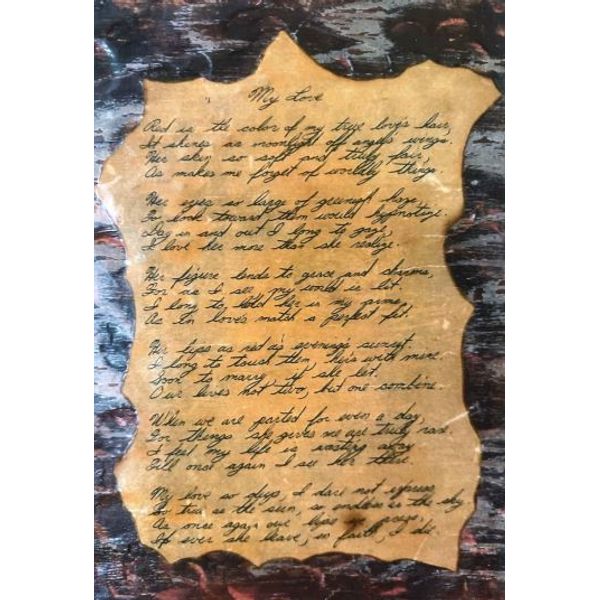 My Love
Red is the color of my true love's hair,
It shines as moonlight off angels wings.
Her skin so soft and truly fair,
As makes me forget of worldly things.
Her eyes so large of greenest haze,
To look toward them would hypnotize.
Day in and out I long to gaze,
I love her more than she realize.
Her figure lends to grace and charms,
For as I see, my world is lit.
I long to hold her in my arms,
As in love's match a perfect fit.
Her lips as red as evening's sunset.
I long to touch them, with mine.
Soon to marry, if she let.
Our lives not two, but one combine.
When we are parted for even a day,
For things she gives me are truly rare
I feel my life is wasting away
Till once again I see her there.
My love so deep, I dare not express
So true as the sun, so endless as the sky
As once again our lips
If ever she leave, in faith, I die.